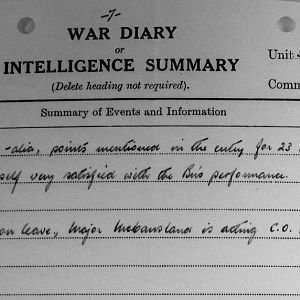 -7-
WAR DIARY
or
INTELLIGENCE SUMMARY
(Delete heading not required).
Unit
Comm
Summary of Events and Information
-alia, points mentioned in the entry for 23
self very satisfied with the Bn's performance.
on leave, Major is acting C.O.